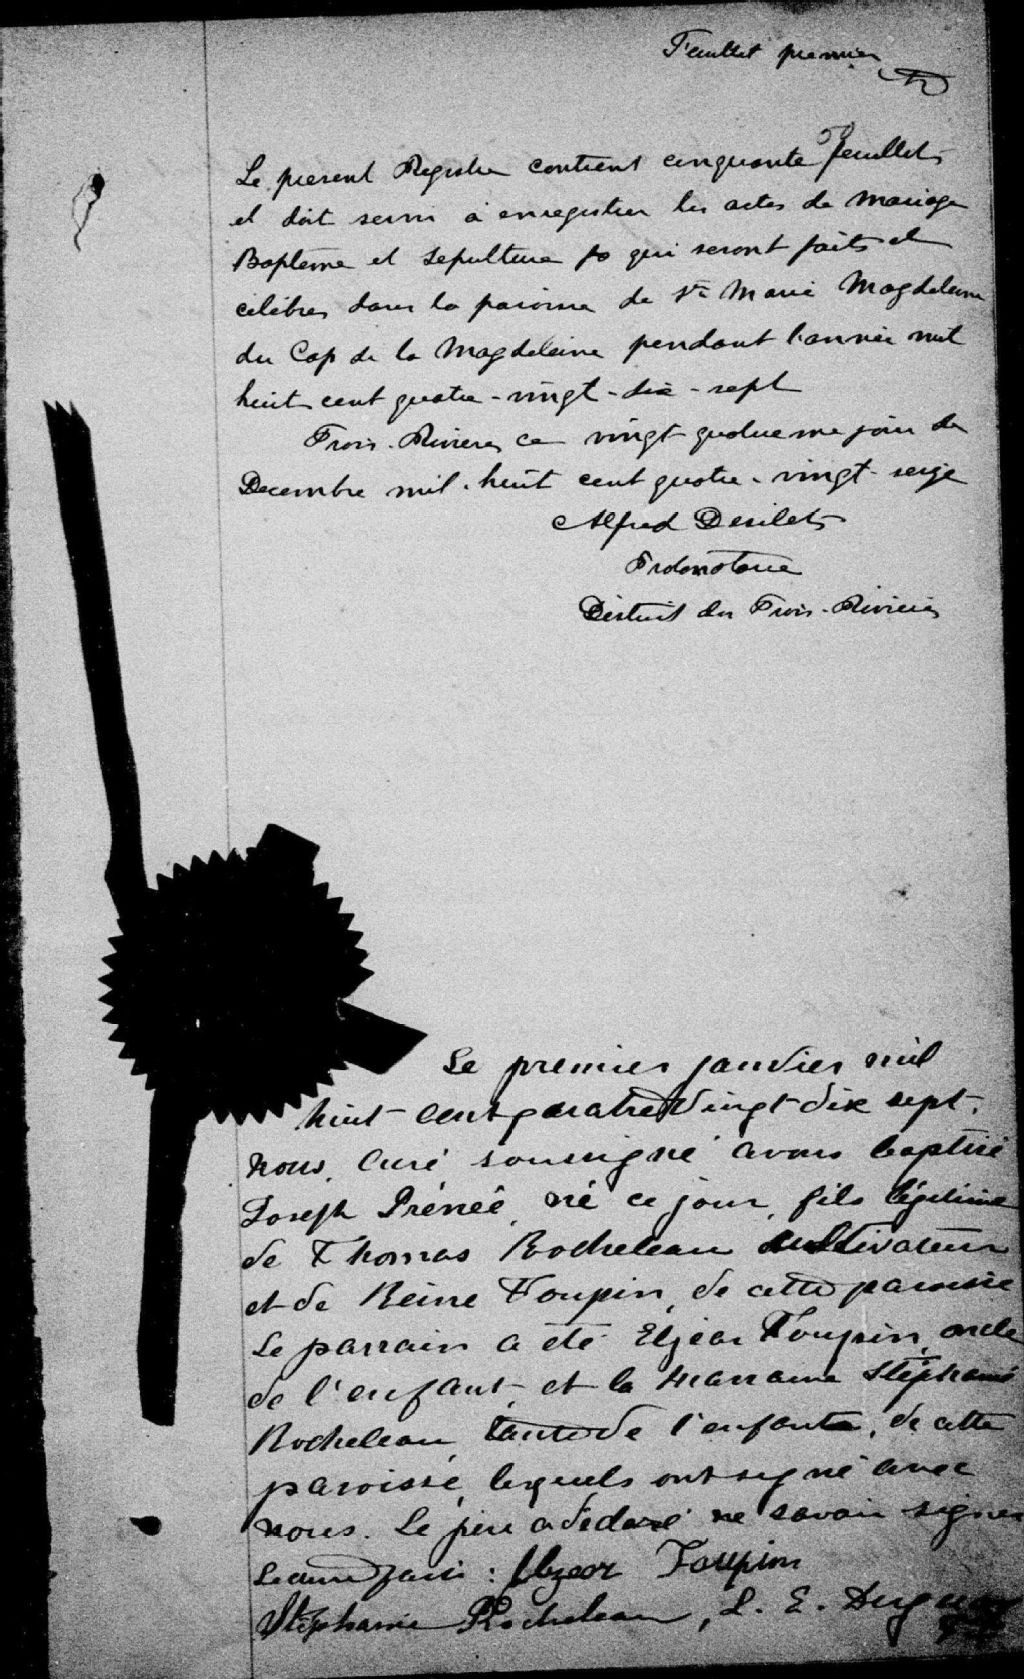 Feuillet premier
Le present Registre contient cinquante feuillets
et doit servir a enregistrer les actes de mariage
Baptême et sepulture qui seront faits et
célébrés dans la paroisse de Ste Marie Magdeleine
du Cap de la Magdeleine pendant l'année mil
huit cent quatre-vingt-dix-sept
Trois-Rivieres ce vingt quatrieme jour de
Decembre mil-huit cent quatre-vingt-seize
Alfred Desilets
Protonotaire
District des Trois-Rivières
Le premier janvier mil
huit cent quatre vingt dix sept.
nous, curé soussigné avons baptisé
Joseph Irénée, né ce jour, fils légitime
de Thomas Rocheleau cultivateur
et de Reine Toupin, de cette paroisse
Le parrain a été Elzéar Toupin, oncle
de l'enfant et la marraine Stéphanie
Rocheleau, tante de l'enfant, de cette
paroisse, lesquels ont signé avec
nous. Le père a déclaré ne savoir signer
Lecture faite : Elzear Toupin
Stéphanie Rocheleau, L. E. Duguay